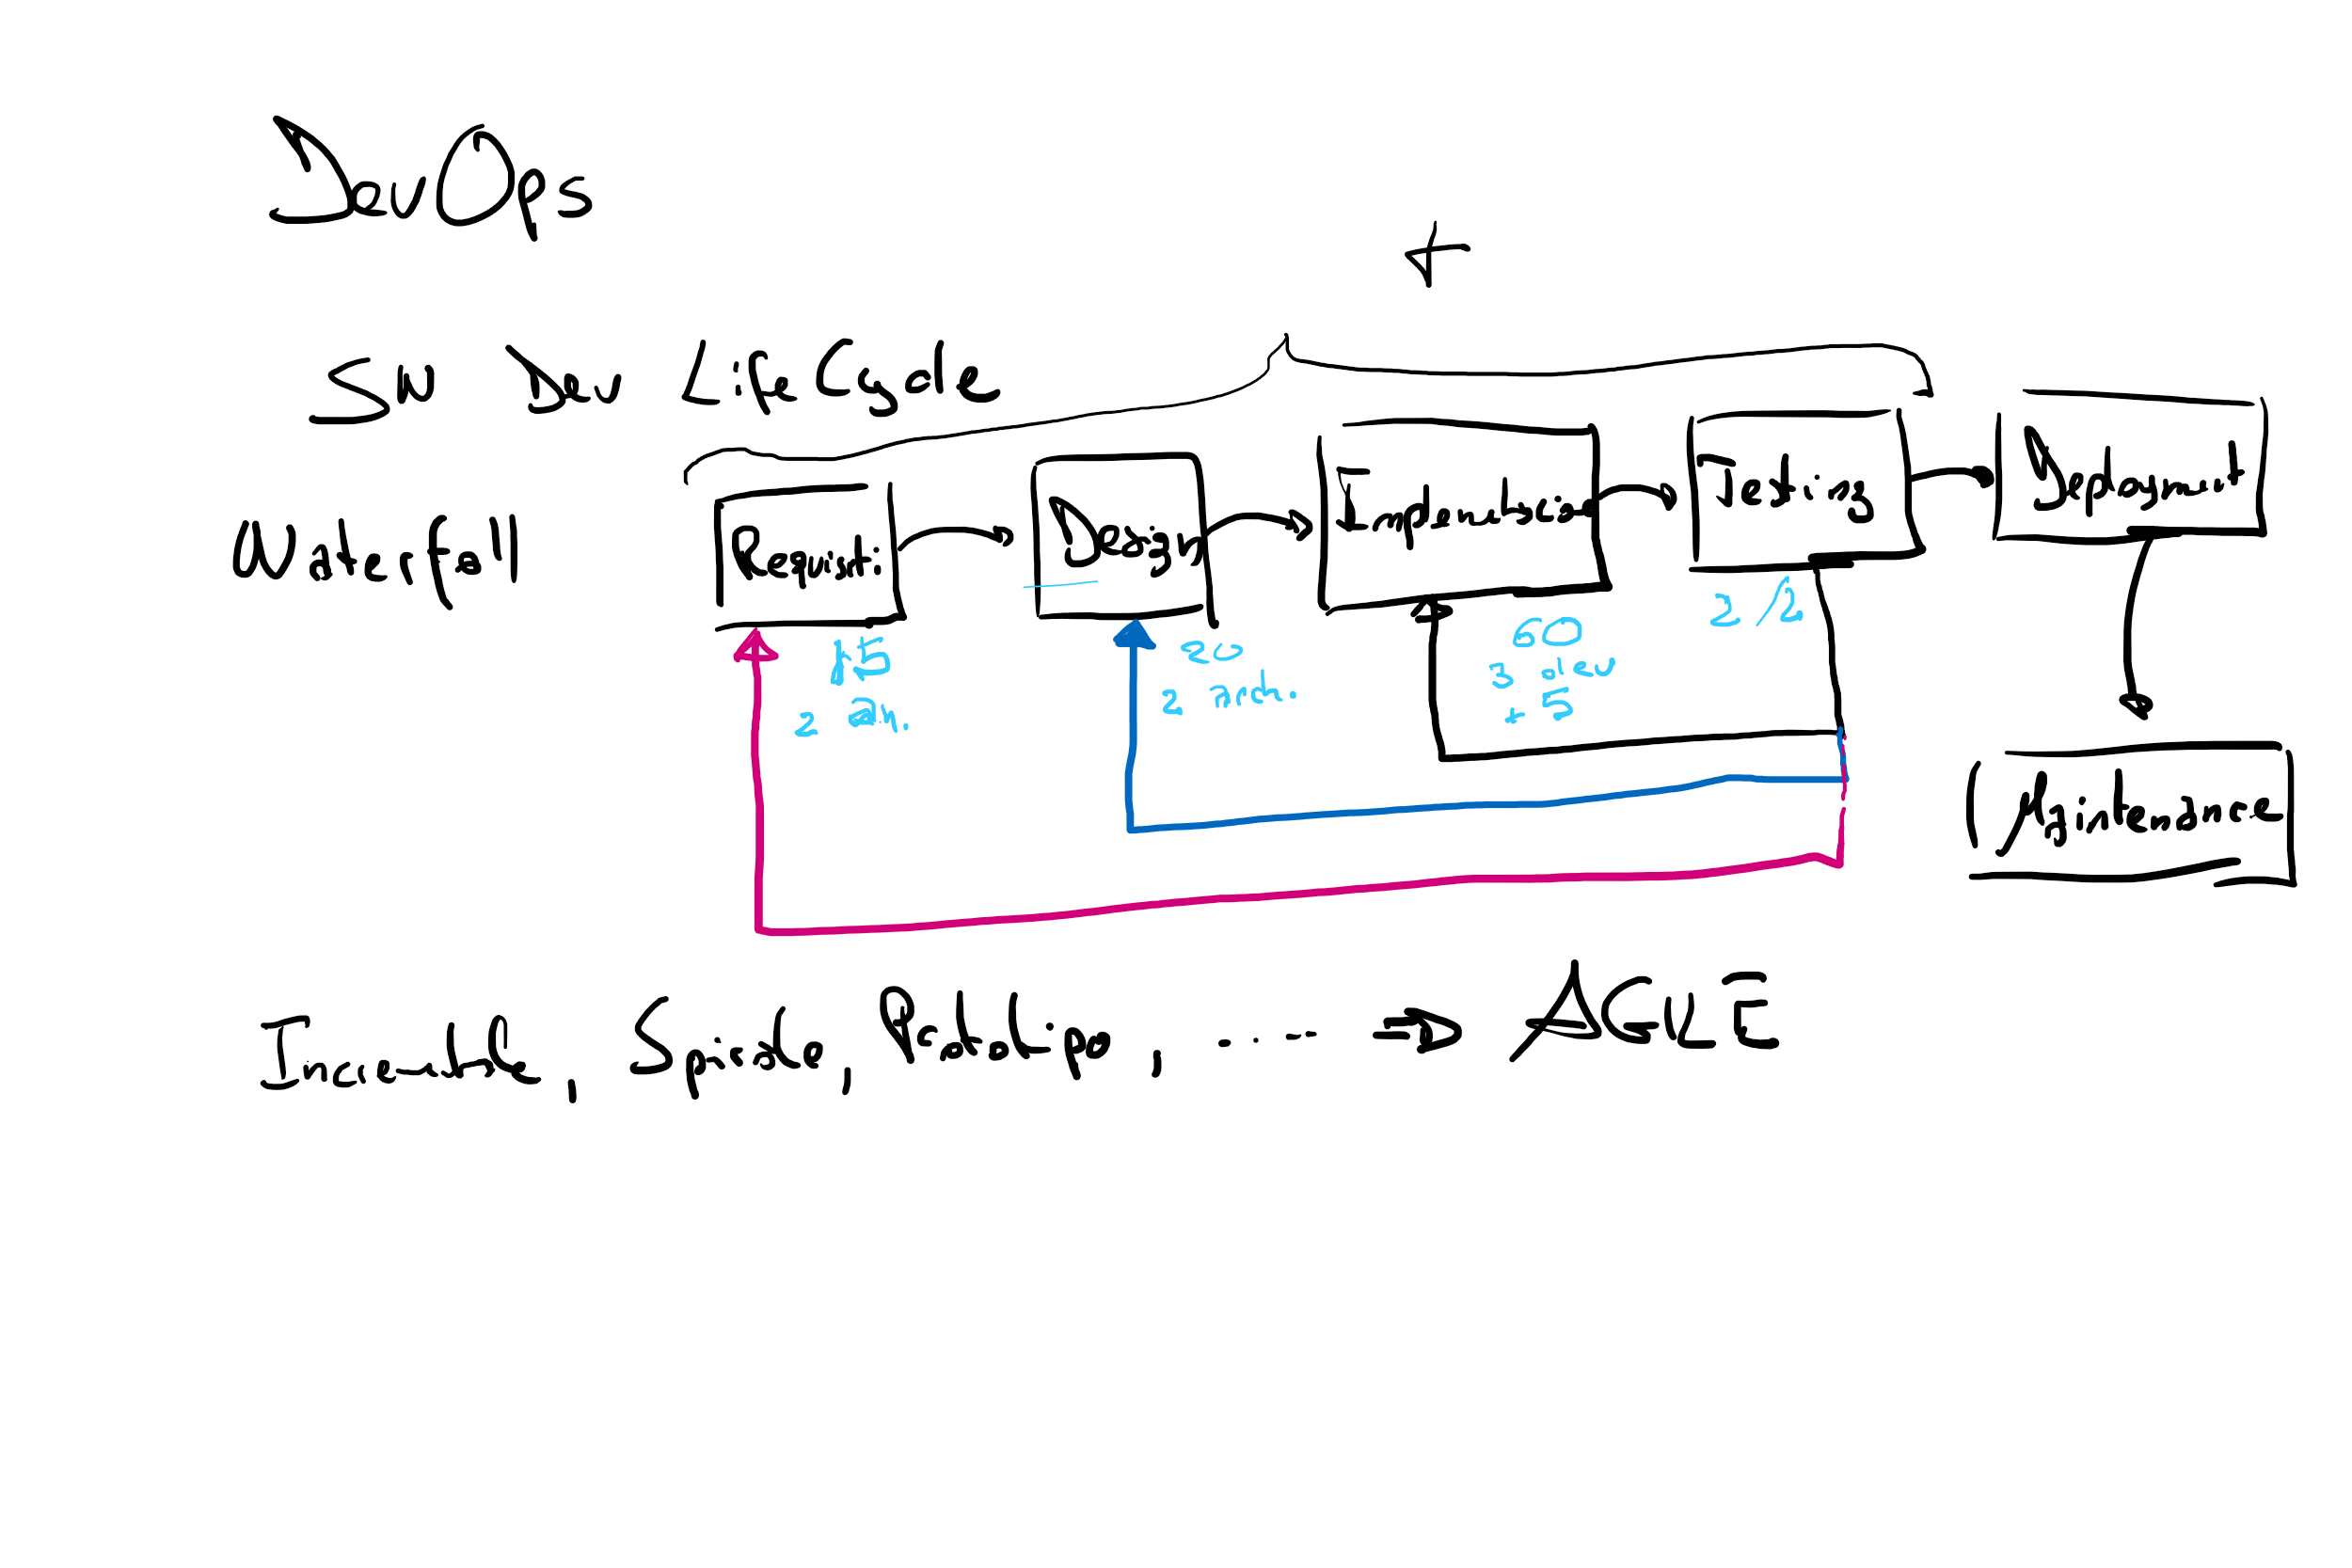 DevOps
SW Dev LifeCycle
Waterfall
Design
Implementation
Testing
Deployment
Maintenance
15
2 an.
20
2 arch.
60
3 dev
+ 5
Incremental, Spirale, Prototipo, ... => AGILE